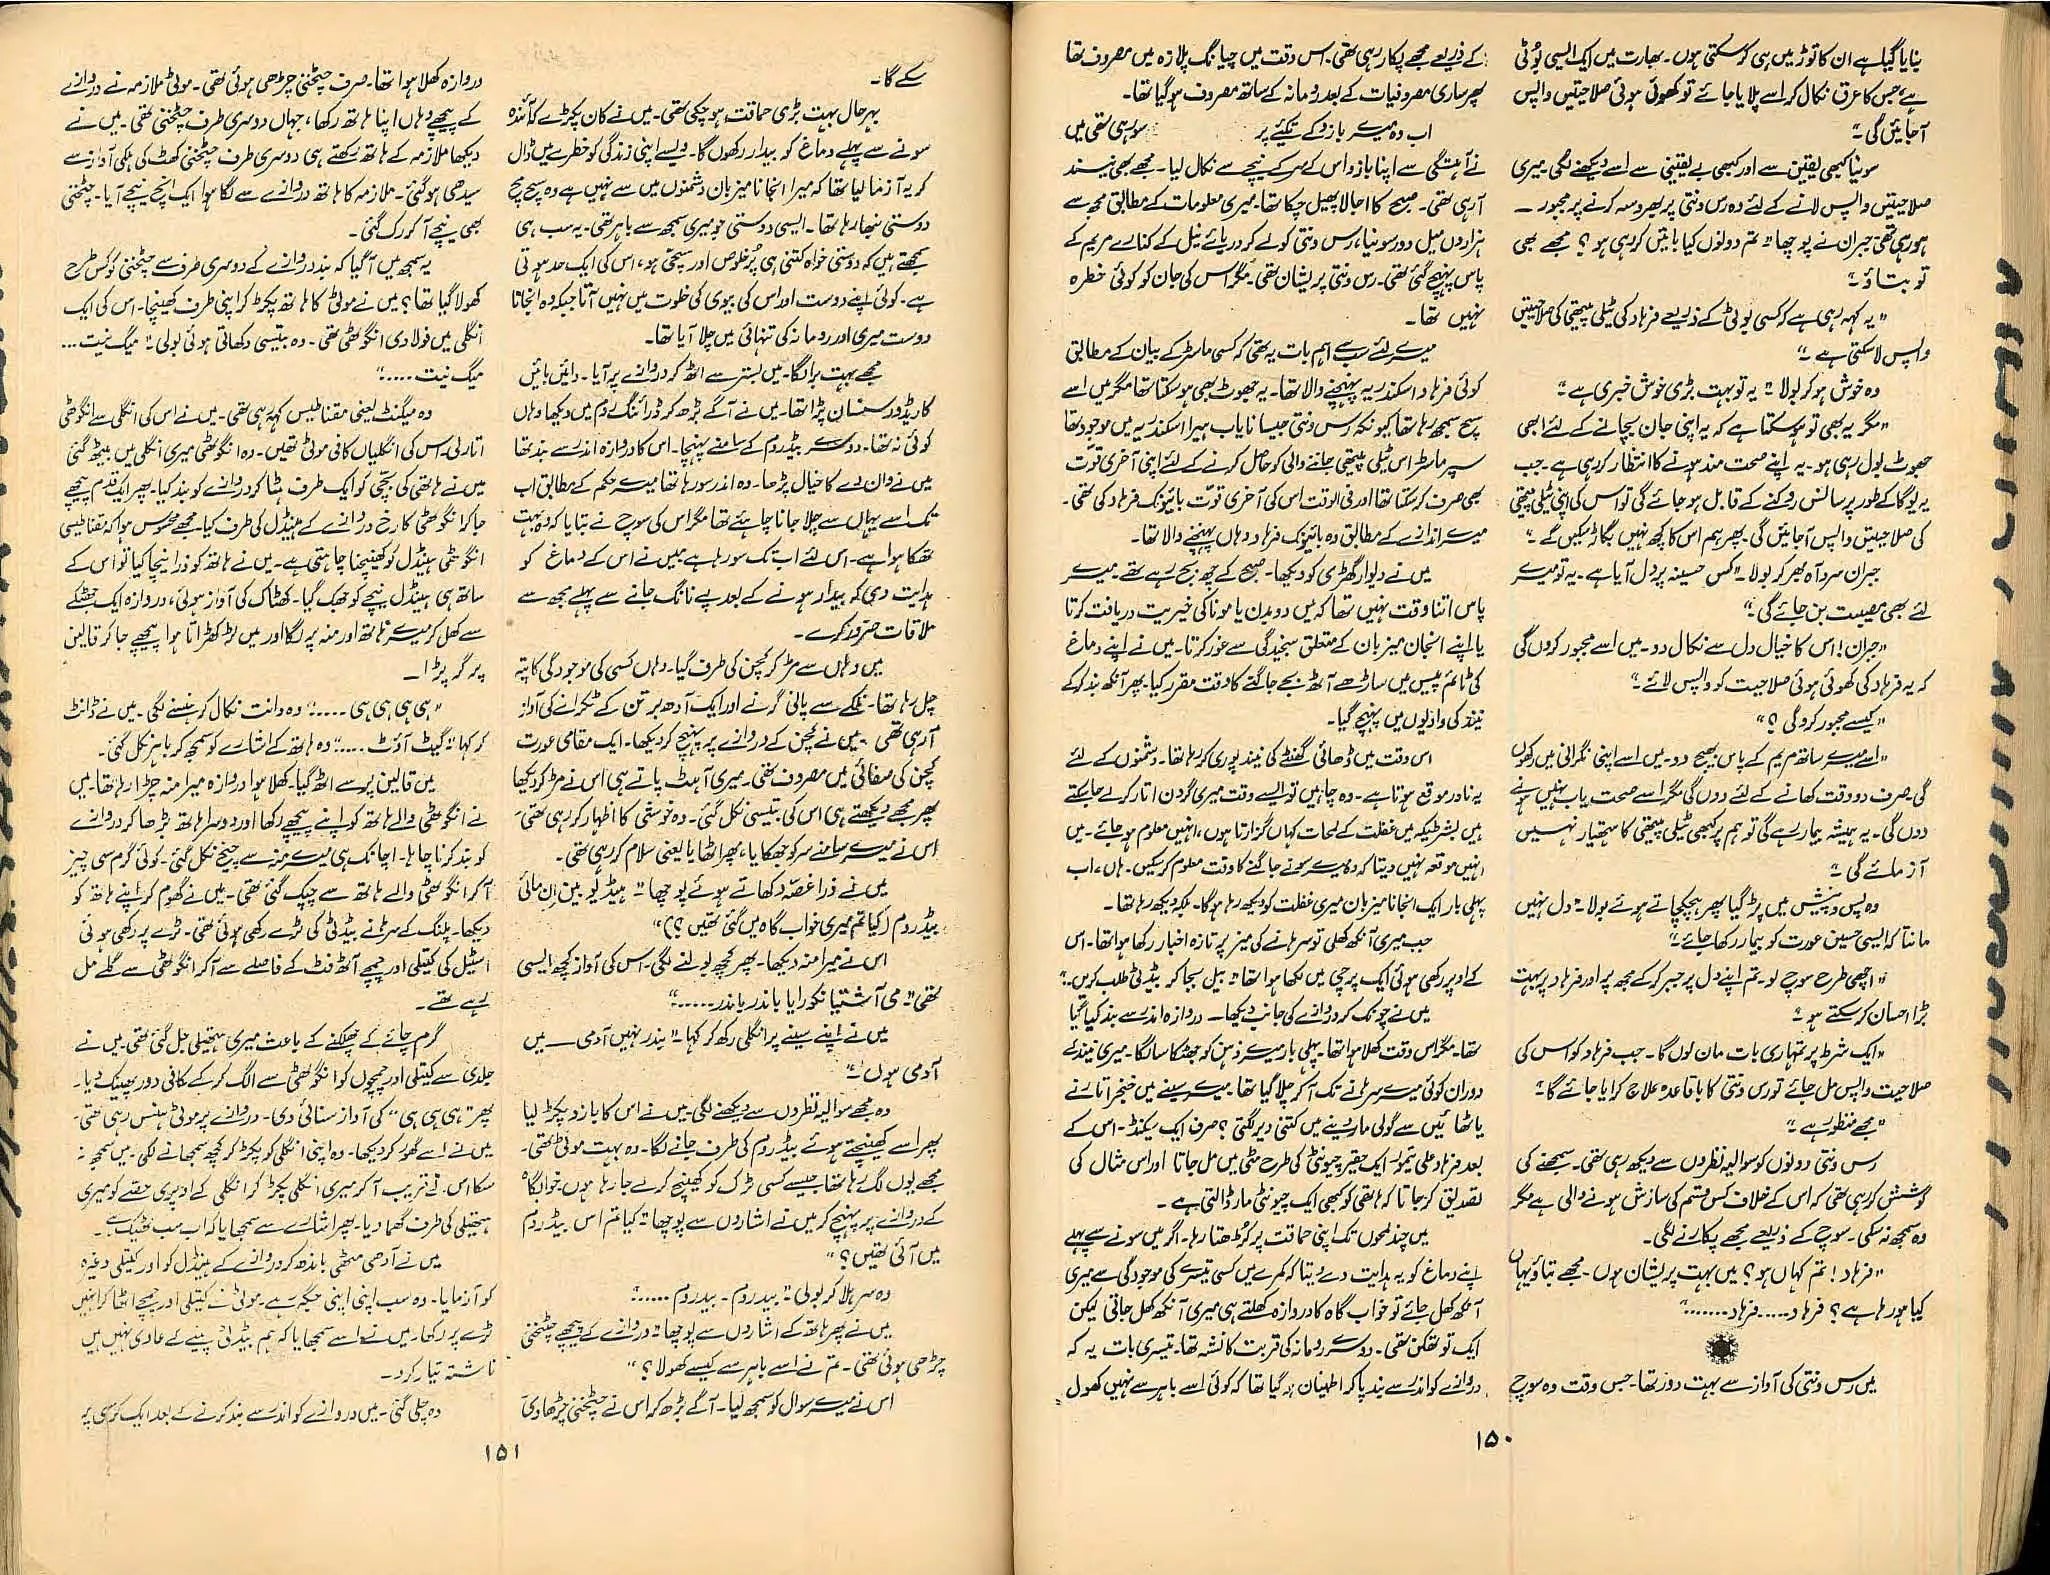 بنایا گیا ہے ان کا توڑ میں ہی کر سکتی ہوں۔ بھارت میں ایک ایسی بُوٹی
ہے جس کا عرق نکال کر اسے پلایا جائے تو کھوئی ہوئی صلاحیتیں واپس
آجائیں گی۔"
سونیا کبھی یقین سے اور کبھی بے یقینی سے اسے دیکھنے لگی۔ میری
صلاحیتیں واپس لانے کے لئے وہ رس ونتی پر بھروسہ کرنے پر مجبور
ہو رہی تھی جبران نے پوچھا "تم دونوں کیا باتیں کر رہی ہو؟ مجھے بھی
تو بتاؤ۔"
"یہ کہہ رہی ہے کہ کسی بوٹی کے ذریعے فرہاد کی ٹیلی پیتھی کی صلاحیتیں
واپس لا سکتی ہے۔"
وہ خوش ہو کر بولا "یہ تو بہت بڑی خوش خبری ہے"
"مگر یہ بھی تو ہو سکتا ہے کہ یہ اپنی جان بچانے کے لئے ابھی
جھوٹ بول رہی ہو۔ یہ اپنے صحت مند ہونے کا انتظار کر رہی ہے۔ جب
یہ یوگا کے طور پر سانس روکنے کے قابل ہو جائے گی تو اس کی اپنی ٹیلی پیتھی
کی صلاحیتیں واپس آجائیں گی۔ پھر ہم اس کا کچھ نہیں بگاڑ سکیں گے۔"
جبران سرد آہ بھر کر بولا۔ "کس حسینہ پر دل آیا ہے۔ یہ تو میرے
لئے بھی مصیبت بن جائے گی۔"
"جبران! اس کا خیال دل سے نکال دو۔ میں اسے مجبور کروں گی
کہ یہ فرہاد کی کھوئی ہوئی صلاحیت کو واپس لائے۔"
"کیسے مجبور کرو گی؟"
"اسے میرے ساتھ مریم کے پاس بھیج دو۔ میں اسے اپنی نگرانی میں رکھوں
گی۔ صرف دو وقت کھانے کے لئے دوں گی مگر اسے صحت یاب نہیں ہونے
دوں گی۔ یہ ہمیشہ بیمار رہے گی تو ہم پر کبھی ٹیلی پیتھی کا ہتھیار نہیں
آزمائے گی۔"
وہ پس و پیش میں پڑ گیا پھر ہچکچاتے ہوئے بولا۔ "دل نہیں
مانتا کہ ایسی حسین عورت کو بیمار رکھا جائے۔"
"اچھی طرح سوچ لو۔ تم اپنے دل پر جبر کر کے مجھ پر اور فرہاد پر بہت
بڑا احسان کر سکتے ہو۔"
"ایک شرط پر تمہاری بات مان لوں گا۔ جب فرہاد کو اس کی
صلاحیت واپس مل جائے تو رس ونتی کا باقاعدہ علاج کرایا جائے گا۔"
"مجھے منظور ہے۔"
رس ونتی دونوں کو سوالیہ نظروں سے دیکھ رہی تھی۔ سمجھنے کی
کوشش کر رہی تھی کہ اس کے خلاف کس قسم کی سازش ہونے والی ہے مگر
وہ سمجھ نہ سکی۔ سوچ کے ذریعے مجھے پکارنے لگی۔
"فرہاد! تم کہاں ہو؟ میں بہت پریشان ہوں۔ مجھے بتاؤ یہاں
کیا ہو رہا ہے؟ فرہاد ..... فرہاد ......."
میں رس ونتی کی آواز سے بہت دور تھا۔ جس وقت وہ سوچ
کے ذریعے مجھے پکار رہی تھی۔ اس وقت میں چیانگ پلازہ میں مصروف تھا
پھر ساری مصروفیات کے بعد رومانہ کے ساتھ مصروف ہو گیا تھا۔
اب وہ میرے بازو کے تکیے پر سو رہی تھی میں
نے آہستگی سے اپنا بازو اس کے سر کے نیچے سے نکال لیا۔ مجھے بھی نیند
آرہی تھی۔ صبح کا اجالا پھیل چکا تھا۔ میری معلومات کے مطابق مجھ سے
ہزاروں میل دور سونیا، رس ونتی کو لے کر دریائے نیل کے کنارے مریم کے
پاس پہنچ گئی تھی۔ رس ونتی پریشان تھی۔ مگر اس کی جان کو کوئی خطرہ
نہیں تھا۔
میرے لئے سب سے اہم بات یہ تھی کہ کسی ماسٹر کے بیان کے مطابق
کوئی فرہاد اسکندریہ پہنچنے والا تھا۔ یہ جھوٹ بھی ہو سکتا تھا مگر میں اسے
سچ سمجھ رہا تھا کیونکہ رس ونتی جیسا نایاب ہیرا اسکندریہ میں موجود تھا
سپر ماسٹر اس ٹیلی پیتھی جاننے والی کو حاصل کرنے کے لئے اپنی آخری قوت
بھی صرف کر سکتا تھا اور فی الوقت اس کی آخری قوت بائیونک فرہاد کی تھی۔
میرے اندازے کے مطابق وہ بائیونک فرہاد وہاں پہنچنے والا تھا۔
میں نے دیوار گھڑی کو دیکھا۔ صبح کے چھ بج رہے تھے۔ میرے
پاس اتنا وقت نہیں تھا کہ میں دو بدن یا مونا کی خیریت دریافت کرتا
یا اپنے انجان میزبان کے متعلق سنجیدگی سے غور کرتا۔ میں نے اپنے دماغ
کی ٹائم پیس میں ساڑھے آٹھ بجے جاگنے کا وقت مقرر کیا۔ پھر آنکھ بند کر کے
نیند کی وادیوں میں پہنچ گیا۔
اس وقت میں ڈھائی گھنٹے کی نیند پوری کر رہا تھا۔ دشمنوں کے لئے
یہ نادر موقع ہوتا ہے۔ وہ چاہیں تو ایسے وقت میری گردن اتار کر لے جا سکتے
ہیں بشرطیکہ میں غفلت کے لمحات کہاں گزارتا ہوں، انہیں معلوم ہو جائے۔ میں
انہیں موقعہ نہیں دیتا کہ وہ میرے سونے جاگنے کا وقت معلوم کر سکیں۔ ہاں، اب
پہلی بار ایک انجانا میزبان میری غفلت کو دیکھ رہا ہو گا۔ بلکہ دیکھ رہا تھا۔
جب میری آنکھ کھلی تو سرہانے کی میز پر تازہ اخبار رکھا ہوا تھا۔ اس
کے اوپر رکھی ہوئی ایک پرچی میں لکھا ہوا تھا "بیل بجا کر بیڈ ٹی طلب کریں۔"
میں نے چونک کر دروازے کی جانب دیکھا۔ دروازہ اندر سے بند کیا گیا
تھا۔ مگر اس وقت کھلا ہوا تھا۔ پہلی بار میرے ذہن کو جھٹکا سا لگا۔ میری نیند کے
دوران کوئی میرے سرہانے تک آکر چلا گیا تھا۔ میرے سینے میں خنجر اتارنے
یا ٹھائیں سے گولی مار دینے میں کتنی دیر لگتی؟ صرف ایک سیکنڈ۔ اس کے
بعد فرہاد علی تیمور ایک حقیر چیونٹی کی طرح مٹی میں مل جاتا اور اس مثال کی
تصدیق کر جاتا کہ ہاتھی کو کبھی ایک چیونٹی مار ڈالتی ہے۔
میں چند لمحوں تک اپنی حماقت پر کڑھتا رہا۔ اگر میں سونے سے پہلے
اپنے دماغ کو یہ ہدایت دے دیتا کہ کمرے میں کسی تیسرے کی موجودگی سے میری
آنکھ کھل جائے تو خواب گاہ کا دروازہ کھلتے ہی میری آنکھ کھل جاتی لیکن
ایک تو تھکن تھی۔ دوسرے رومانہ کی قربت کا نشہ تھا۔ تیسری بات یہ کہ
دروازے کو اندر سے بند پا کر اطمینان ہو گیا تھا کہ کوئی اسے باہر سے نہیں کھول
۱۵۰
سکے گا۔
بہرحال بہت بڑی حماقت ہو چکی تھی۔ میں نے کان پکڑے کہ آئندہ
سونے سے پہلے دماغ کو بیدار رکھوں گا۔ ویسے اپنی زندگی کو خطرے میں ڈال
کر یہ آزما لیا تھا کہ میرا انجانا میزبان دشمنوں میں سے نہیں ہے وہ سچ مچ
دوستی نبھا رہا تھا۔ ایسی دوستی جو میری سمجھ سے باہر تھی۔ یہ سب ہی
سمجھتے ہیں کہ دوستی خواہ کتنی ہی پُرخلوص اور سچی ہو، اس کی ایک حد ہوتی
ہے۔ کوئی اپنے دوست اور اس کی بیوی کی خلوت میں نہیں آتا جبکہ وہ انجانا
دوست میری اور رومانہ کی تنہائی میں چلا آیا تھا۔
مجھے بہت برا لگا۔ میں بستر سے اٹھ کر دروازے پر آیا۔ دائیں بائیں
کاریڈور سنسان پڑا تھا۔ میں نے آگے بڑھ کر ڈرائنگ روم میں دیکھا وہاں
کوئی نہ تھا۔ دوسرے بیڈ روم کے سامنے پہنچا۔ اس کا دروازہ اندر سے بند تھا
میں نے وان دے کا خیال پڑھا۔ وہ اندر سو رہا تھا میرے حکم کے مطابق اب
تک اسے یہاں سے چلا جانا چاہئے تھا مگر اس کی سوچ نے بتایا کہ وہ بہت
تھکا ہوا ہے۔ اس لئے اب تک سو رہا ہے میں نے اس کے دماغ کو
ہدایت دی کہ بیدار ہونے کے بعد پے نانگ جانے سے پہلے مجھ سے
ملاقات ضرور کرے۔
میں وہاں سے مڑ کر کچن کی طرف گیا۔ وہاں کسی کی موجودگی کا پتہ
چل رہا تھا۔ نلکے سے پانی گرنے اور ایک آدھ برتن کے ٹکرانے کی آواز
آرہی تھی۔ میں نے کچن کے دروازے پر پہنچ کر دیکھا۔ ایک مقامی عورت
کچن کی صفائی میں مصروف تھی۔ میری آہٹ پاتے ہی اس نے مڑ کر دیکھا
پھر مجھے دیکھتے ہی اس کی بتیسی نکل گئی۔ وہ خوشی کا اظہار کر رہی تھی۔
اس نے میرے سامنے سر کو جھکایا، پھر اٹھایا یعنی سلام کر رہی تھی۔
میں نے ذرا غصہ دکھاتے ہوئے پوچھا "ہیڈ یُو بین اِن مائی
بیڈ روم (کیا تم میری خواب گاہ میں گئی تھیں؟)"
اس نے میرا منہ دیکھا۔ پھر کچھ بولنے لگی۔ اس کی آواز کچھ ایسی
تھی "می آشتیا نکورایا باندر باندر ......"
میں نے اپنے سینے پر انگلی رکھ کر کہا "بندر نہیں آدمی ـــ میں
آدمی ہوں۔"
وہ مجھے سوالیہ نظروں سے دیکھنے لگی۔ میں نے اس کا بازو پکڑ لیا
پھر اسے کھینچتے ہوئے بیڈ روم کی طرف جانے لگا۔ وہ بہت موٹی تھی۔
مجھے یوں لگ رہا تھا جیسے کسی ٹرک کو کھینچ کر لے جا رہا ہوں، خوابگاہ
کے دروازے پر پہنچ کر میں نے اشاروں سے پوچھا "کیا تم اس بیڈ روم
میں آئی تھیں؟"
وہ سر ہلا کر بولی "بیدروم۔ بیدروم ......"
میں نے پھر ہاتھ کے اشاروں سے پوچھا "دروازے کے پیچھے چٹخنی
چڑھی ہوئی تھی۔ تم نے اسے باہر سے کیسے کھولا؟"
اس نے میرے سوال کو سمجھ لیا۔ آگے بڑھ کر اس نے چٹخنی چڑھا دی
دروازہ کھلا ہوا تھا۔ صرف چٹخنی چڑھی ہوئی تھی۔ موٹی ملازمہ نے دروازے
کے پیچھے وہاں اپنا ہاتھ رکھا، جہاں دوسری طرف چٹخنی تھی۔ میں نے
دیکھا ملازمہ کے ہاتھ رکھتے ہی دوسری طرف چٹخنی کھٹ کی ہلکی آواز سے
سیدھی ہو گئی۔ ملازمہ کا ہاتھ دروازے سے لگا ہوا ایک انچ نیچے آیا۔ چٹخنی
بھی نیچے آکر رک گئی۔
یہ سمجھ میں آگیا کہ بند دروازے کے دوسری طرف سے چٹخنی کو کس طرح
کھولا گیا تھا؟ میں نے موٹی کا ہاتھ پکڑ کر اپنی طرف کھینچا۔ اس کی ایک
انگلی میں فولادی انگوٹھی تھی۔ وہ بتیسی دکھاتی ہوئی بولی "میگ نیت ...
میگ نیت ...."
وہ میگنٹ یعنی مقناطیس کہہ رہی تھی۔ میں نے اس کی انگلی سے انگوٹھی
اتار لی۔ اس کی انگلیاں کافی موٹی تھیں۔ وہ انگوٹھی میری انگلی میں بیٹھ گئی
میں نے ہاتھی کی بچی کو ایک طرف ہٹا کر دروازے کو بند کیا۔ پھر ایک قدم پیچھے
جا کر انگوٹھی کا رخ دروازے کے ہینڈل کی طرف کیا۔ مجھے محسوس ہوا کہ مقناطیسی
انگوٹھی ہینڈل کو کھینچنا چاہتی ہے۔ میں نے ہاتھ کو ذرا نیچا کیا تو اس کے
ساتھ ہی ہینڈل نیچے کو جھک گیا۔ کھٹاک کی آواز ہوئی، دروازہ ایک جھٹکے
سے کھل کر میرے ہاتھ اور منہ پر لگا اور میں لڑکھڑاتا ہوا پیچھے جا کر قالین
پر گر پڑا۔
"ہی ہی ہی ہی ....." وہ دانت نکال کر ہنسنے لگی۔ میں نے ڈانٹ
کر کہا "گیٹ آؤٹ ....." وہ ہاتھ کے اشارے کو سمجھ کر باہر نکل گئی۔
میں قالین پر سے اٹھ گیا۔ کھلا ہوا دروازہ میرا منہ چڑا رہا تھا۔ میں
نے انگوٹھی والے ہاتھ کو اپنے پیچھے رکھا اور دوسرا ہاتھ بڑھا کر دروازے
کو بند کرنا چاہا۔ اچانک ہی میرے منہ سے چیخ نکل گئی۔ کوئی گرم سی چیز
آکر انگوٹھی والے ہاتھ سے چپک گئی تھی۔ میں نے گھوم کر اپنے ہاتھ کو
دیکھا۔ پلنگ کے سرہانے بیڈ ٹی کی ٹرے رکھی ہوئی تھی۔ ٹرے پر رکھی ہوئی
اسٹیل کی کیتلی اور چمچے آٹھ فٹ کے فاصلے سے آکر انگوٹھی سے گلے مل
رہے تھے۔
گرم چائے کے چھلکنے کے باعث میری ہتھیلی جل گئی تھی۔ میں نے
جلدی سے کیتلی اور چمچوں کو انگوٹھی سے الگ کر کے کافی دور پھینک دیا۔
پھر "ہی ہی ہی" کی آواز سنائی دی۔ دروازے پر موٹی ہنس رہی تھی۔
میں نے اسے گھور کر دیکھا۔ وہ اپنی انگلی کو پکڑ کر کچھ سمجھانے لگی۔ میں سمجھ نہ
سکا اس نے قریب آکر میری انگلی پکڑ کر انگلی کے اوپری حصے کو میری
ہتھیلی کی طرف گھما دیا۔ پھر اشارے سے سمجھایا کہ اب سب ٹھیک ہے۔
میں نے آدھی مٹھی باندھ کر دروازے کے ہینڈل کو اور کیتلی وغیرہ
کو آزمایا۔ وہ سب اپنی اپنی جگہ رہے۔ موٹی نے کیتلی اور چمچے اٹھا کر انہیں
ٹرے پر رکھا۔ میں نے اسے سمجھایا کہ ہم بیڈ ٹی پینے کے عادی نہیں ہیں
ناشتہ تیار کرو۔
وہ چلی گئی۔ میں دروازے کو اندر سے بند کرنے کے بعد ایک کرسی پر
۱۵۱